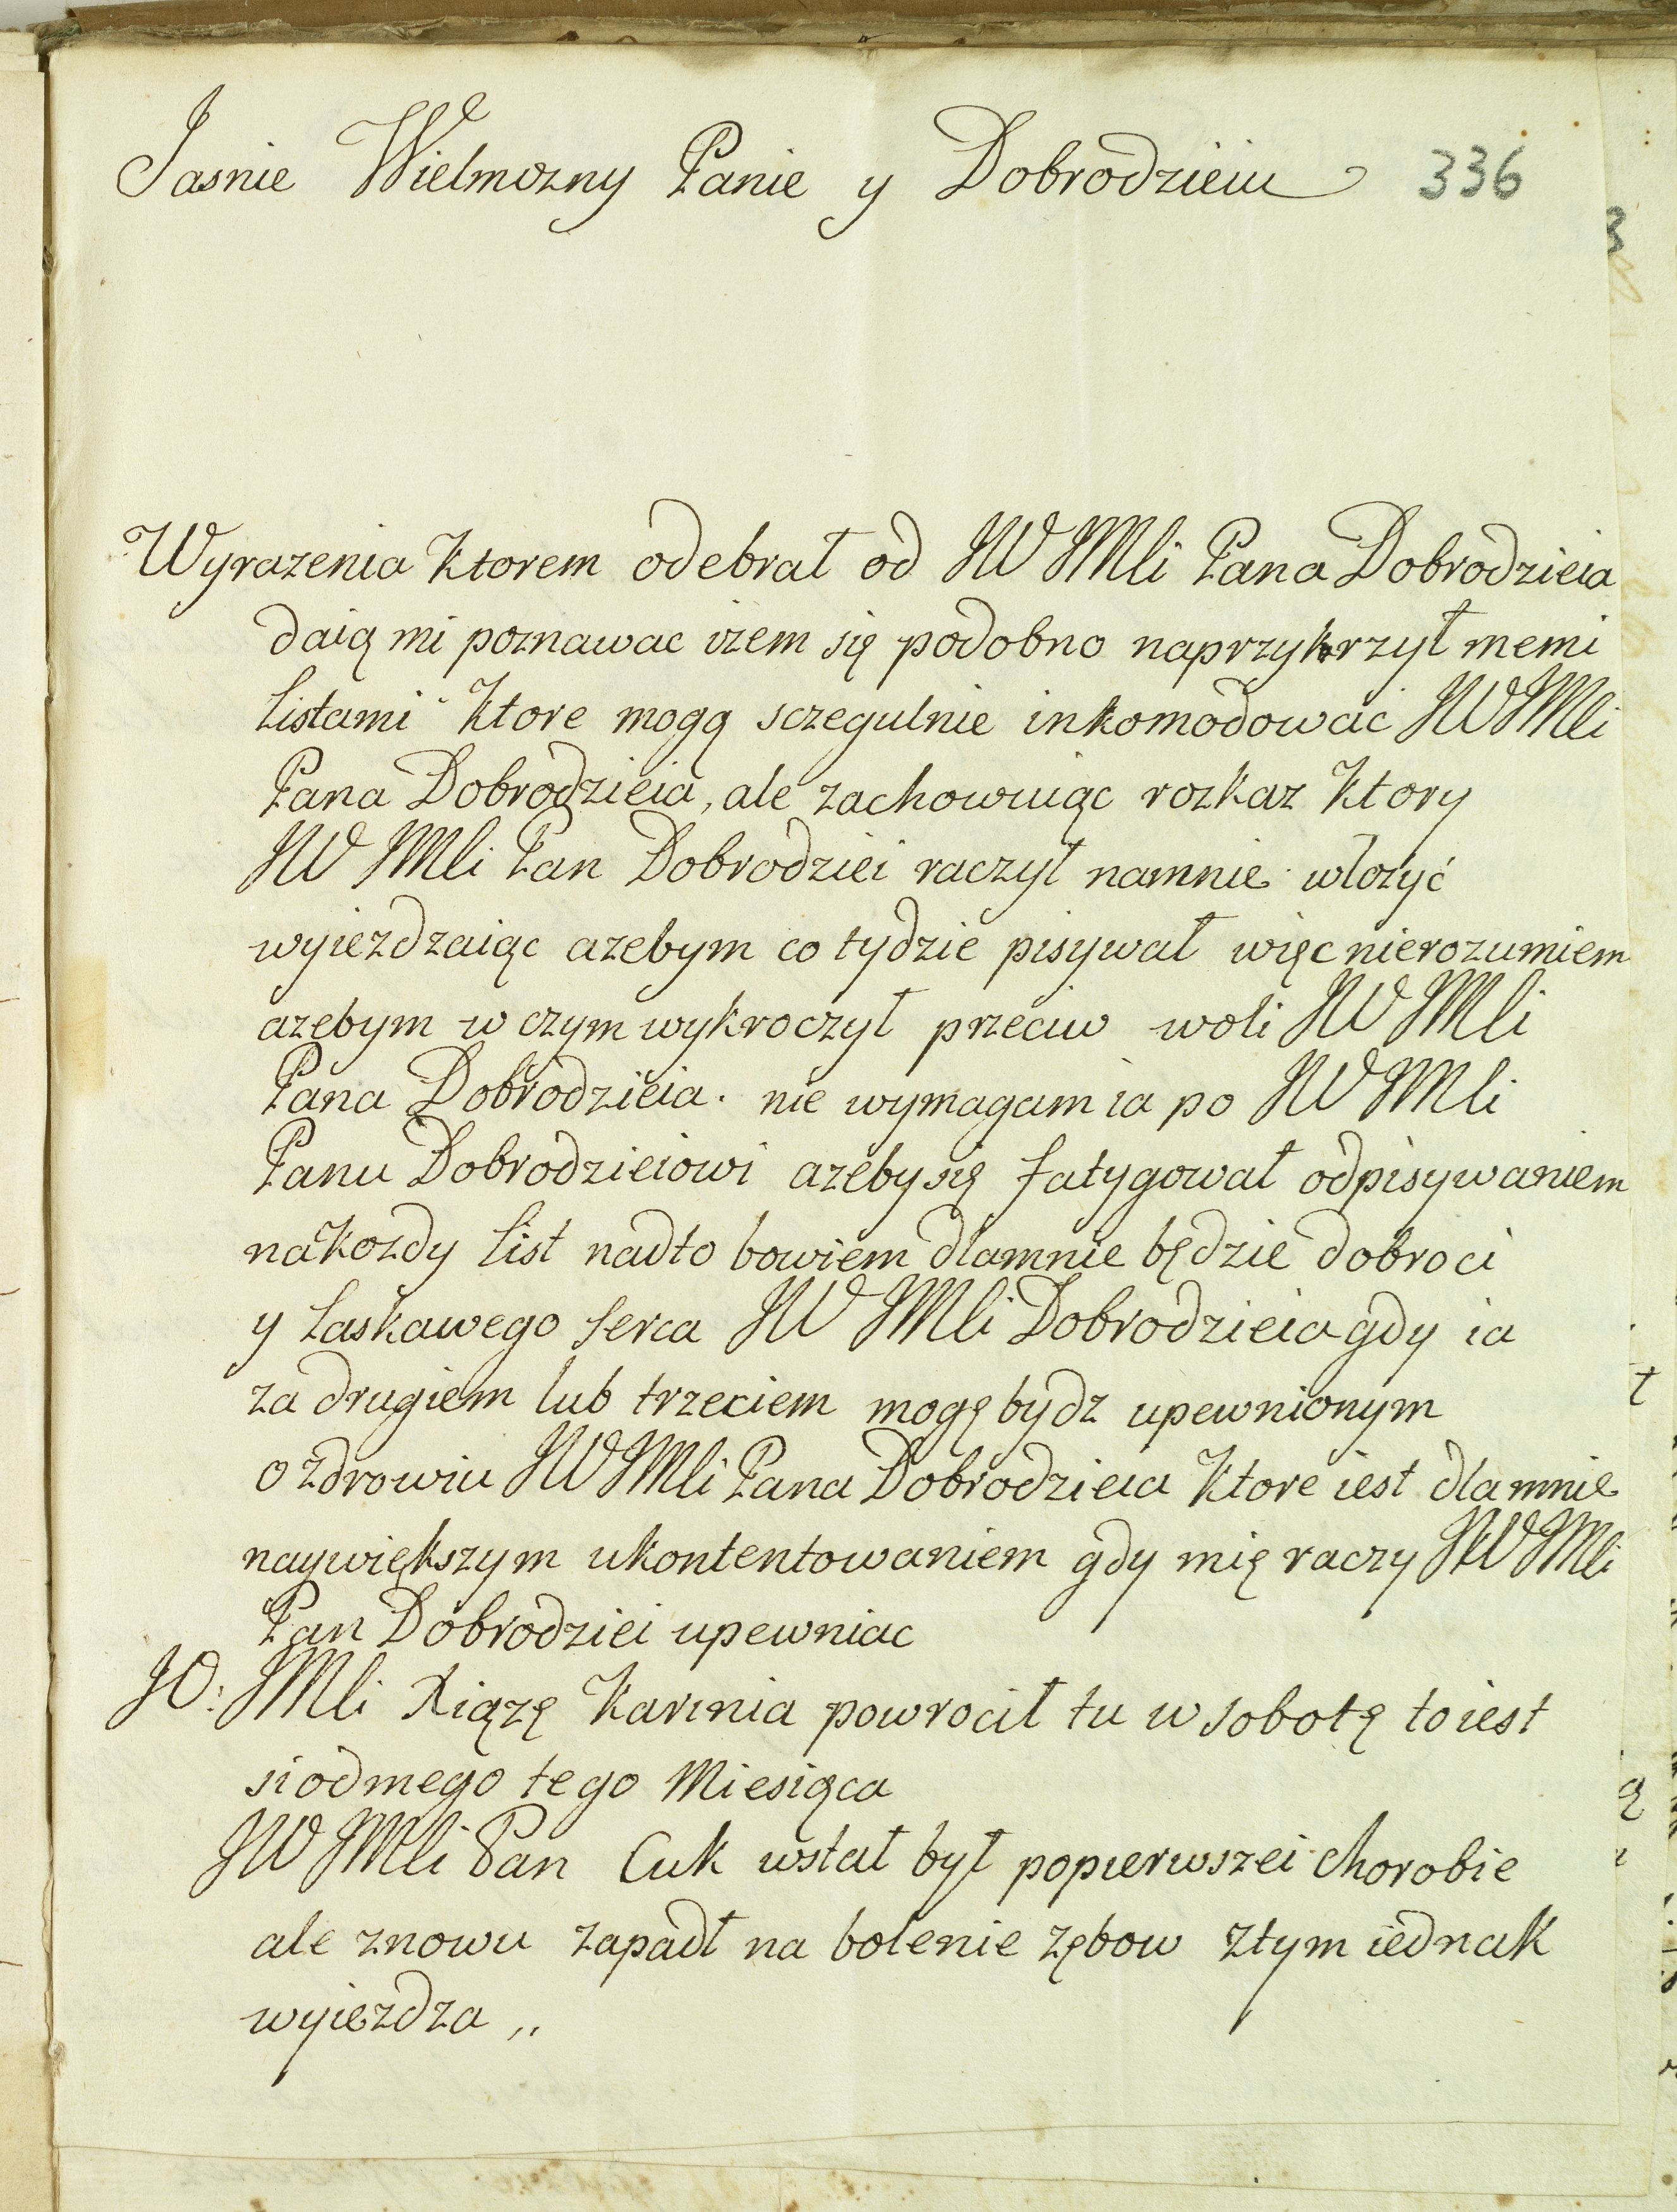 Jasnie Wielmozny Panie y Dobrodzieiu 336
Wyrazenia Ktorem odebrał od JW JMli Pana Dobrodzieia
daią mi poznawac iżem się podobno naprzykrzył memi
Listami Ktore mogą sczegulnie inkomodowac JW JMli
Pana Dobrodzieia, ale zachowuiąc rozkaz Ktory
JW JMli Pan Dobrodziei raczył namnie włozyć
wyiezdzaiąc azebym co tydzie pisywał więc nierozumiem
azebym w czym wykroczył przeciw woli JW JMli
Pana Dobrodzieia. nie wymagam ia po JW JMli
Panu Dobrodzieiowi azeby się fatygował odpisywaniem
na Kozdy List nadto bowiem dlamnie będzie dobroci
y Łaskawego Serca JW JMli Dobrodzieia gdy ia
za drugiem lub trzeciem mogę bydz upewnionym
o zdrowiu JW JMli Pana Dobrodzieia Ktore iest dlamnie
naywiększym ukontentowaniem gdy mię raczy JW JMli
Pan Dobrodziei upewniac
JO: JMli Xiązę powrocił tu w sobotę to iest
siodmego tego Miesiąca
JW JMli Pan Cuk wstał był popierwszei chorobie
ale znowu zapadł na bolenie zębow ztym iednak
wyiezdza ,,